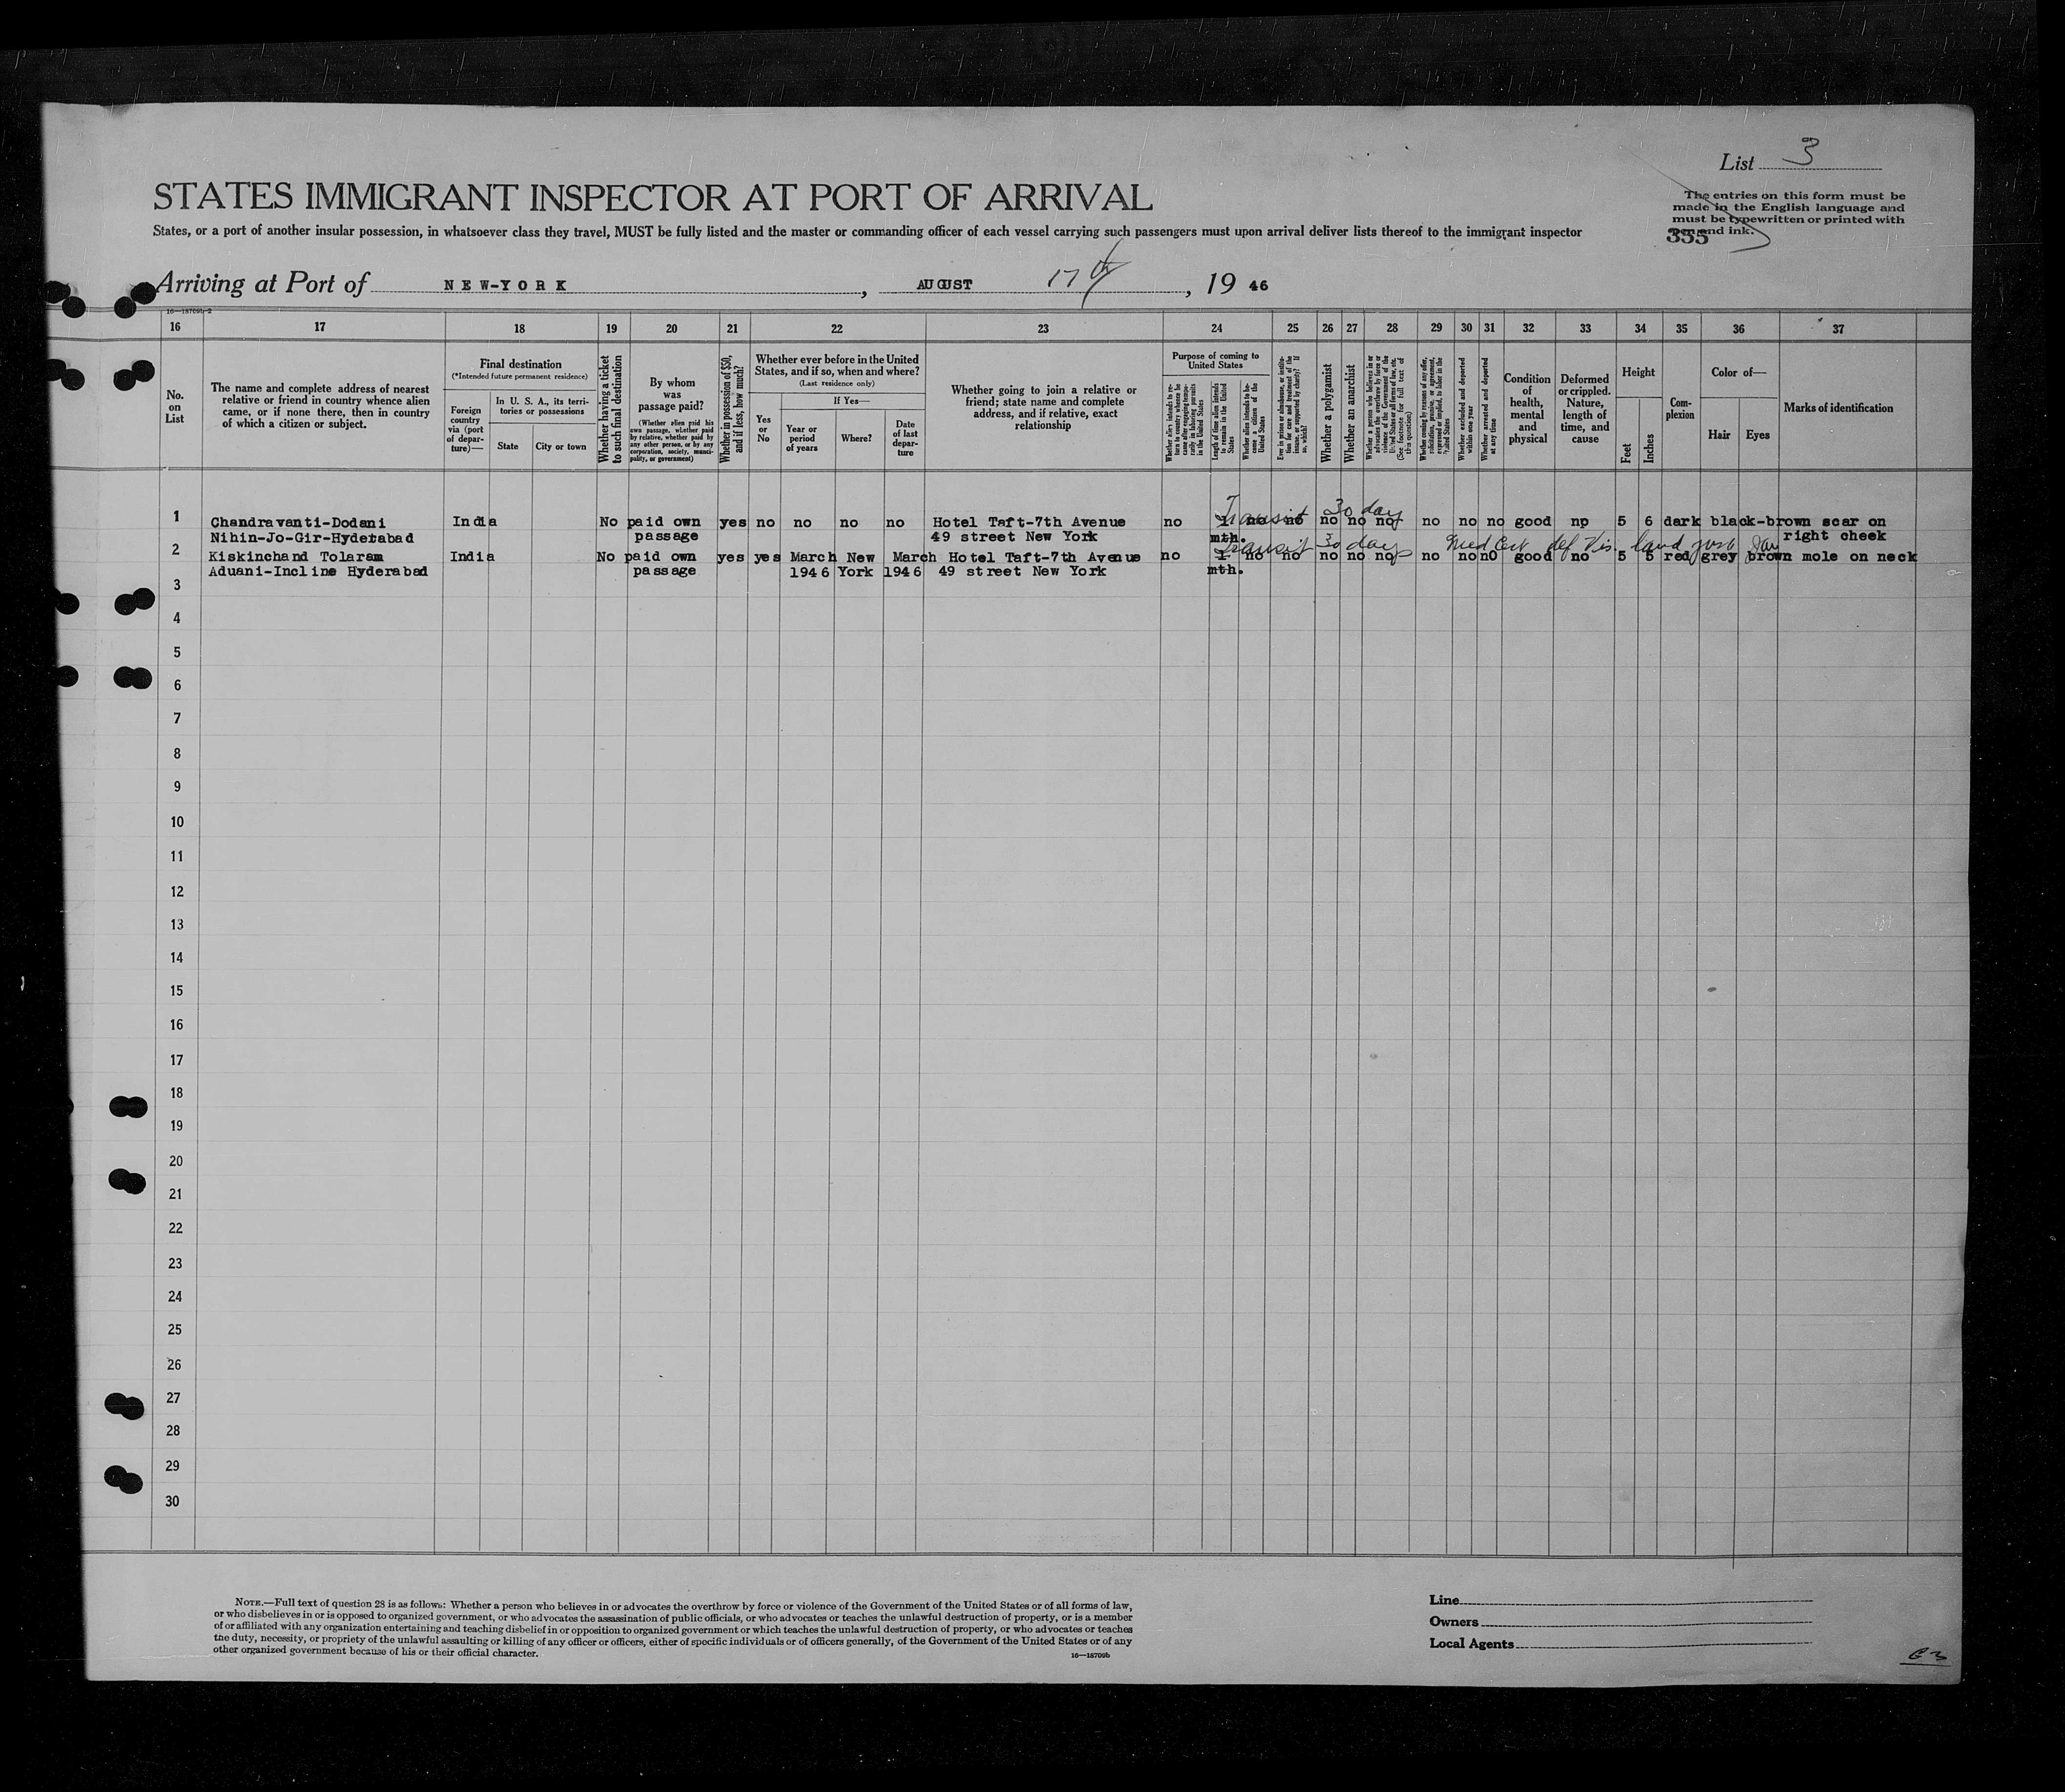 List 3
STATES IMMIGRANT INSPECTOR AT PORT OF ARRIVAL
The entries on this form must be
made in the English language and
must be typewritten or printed with
pen and ink.
355
States, or a port of another insular possession, in whatsoever class they travel, MUST be fully listed and the master or commanding officer of each vessel carrying such passengers must upon arrival deliver lists thereof to the immigrant inspector
Arriving at Port of NEW-YORK, AUGUST 17th, 19 46
16—18709b-2
16 17 18 19 20 21 22 23 24 25 26 27 28 29 30 31 32 33 34 35 36 37
No. on List
The name and complete address of nearest
relative or friend in country whence alien
came, or if none there, then in country
of which a citizen or subject.
Final destination
(*Intended future permanent residence)
Foreign country via (port of departure)—
In U. S. A., its territories or possessions
State
City or town
Whether having a ticket to such final destination
By whom was passage paid?
(Whether alien paid his own passage, whether paid by relative, whether paid by any other person, or by any corporation, society, municipality, or government)
Whether in possession of $50, and if less, how much?
Whether ever before in the United States, and if so, when and where?
(Last residence only)
Yes or No
If Yes—
Year or period of years
Where?
Date of last departure
Whether going to join a relative or
friend; state name and complete
address, and if relative, exact
relationship
Purpose of coming to United States
Whether alien intends to return to country whence he came after engaging temporarily in laboring pursuits in the United States
Length of time alien intends to remain in the United States
Whether alien intends to become a citizen of the United States
Ever in prison or almshouse, or institution for care and treatment of the insane, or supported by charity? If so, which?
Whether a polygamist
Whether an anarchist
Whether a person who believes in or advocates the overthrow by force or violence of the Government of the United States or all forms of law, etc. (See footnote for full text of this question)
Whether coming by reasons of any offer, solicitation, promise, or agreement, expressed or implied, to labor in the United States
Whether excluded and deported within one year
Whether arrested and deported at any time
Condition of health, mental and physical
Deformed or crippled. Nature, length of time, and cause
Height
Feet
Inches
Complexion
Color of—
Hair
Eyes
Marks of identification
Transit 30 days
1 Chandravanti-Dodani India No paid own yes no no no no Hotel Taft-7th Avenue no 1 no no no no no no no no good np 5 6 dark black-brown scar on
Nihin-Jo-Gir-Hyderabad passage 49 street New York mth. right cheek
Transit 30 days Med Cert def Vis.
2 Kiskinchand Tolaram India No paid own yes yes March New March Hotel Taft-7th Avenue no 1 no no no no no no no n0 good no 5 5 red grey brown mole on neck
Aduani-Incline Hyderabad passage 1946 York 1946 49 street New York mth.
3
4
5
6
7
8
9
10
11
12
13
14
15
16
17
18
19
20
21
22
23
24
25
26
27
28
29
30
NOTE.—Full text of question 28 is as follows: Whether a person who believes in or advocates the overthrow by force or violence of the Government of the United States or of all forms of law,
or who disbelieves in or is opposed to organized government, or who advocates the assassination of public officials, or who advocates or teaches the unlawful destruction of property, or is a member
of or affiliated with any organization entertaining and teaching disbelief in or opposition to organized government or which teaches the unlawful destruction of property, or who advocates or teaches
the duty, necessity, or propriety of the unlawful assaulting or killing of any officer or officers, either of specific individuals or of officers generally, of the Government of the United States or of any
other organized government because of his or their official character.
16—18709b
Line
Owners
Local Agents